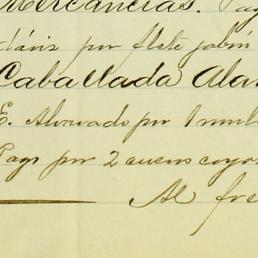 Mercancias. Pag
por flete jabon
Caballada Ala
E. Alvarado por 1 mula
Pago por 2 cueros coyo
Al fre